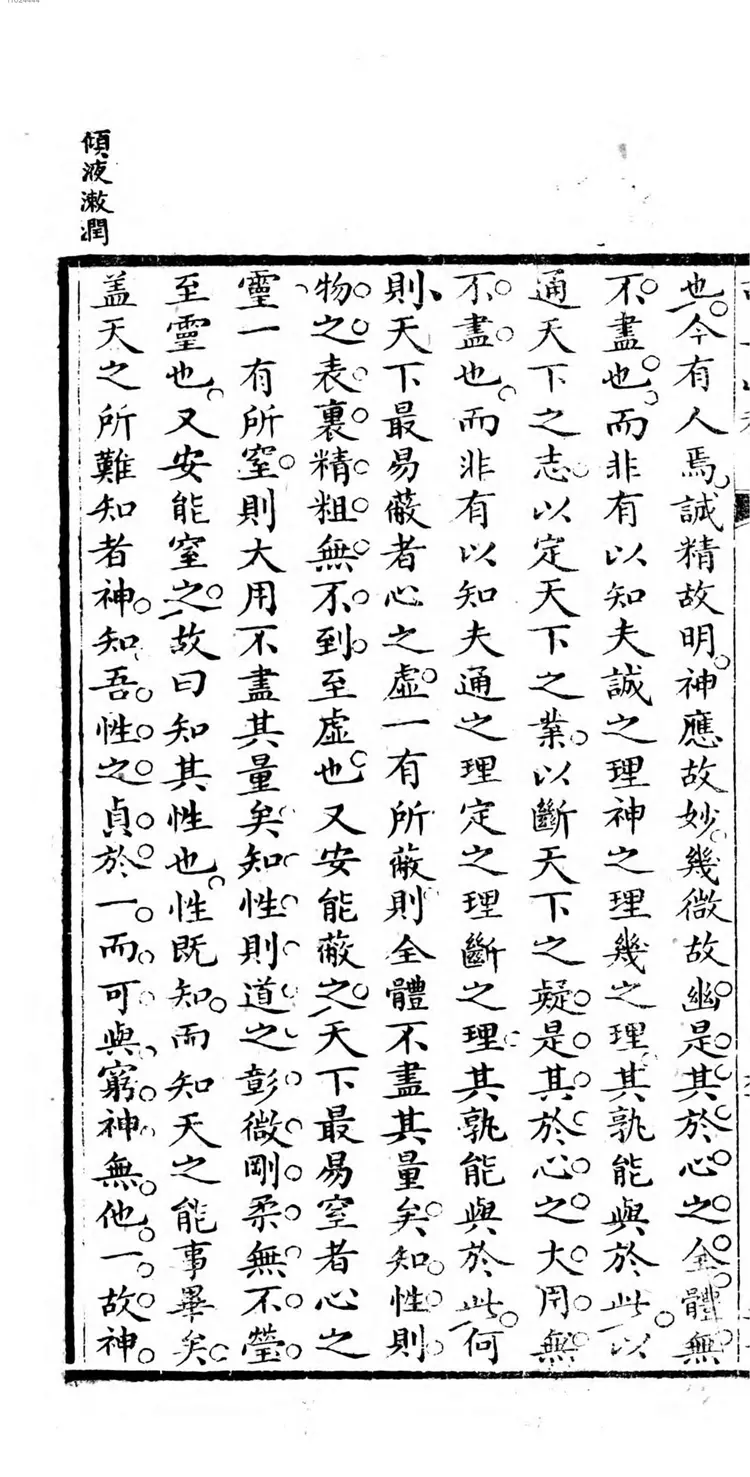 11624444
傾液潄潤
也今有人焉誠精故明神應故妙幾微故幽是其於心之全體無
不盡也而非有以知夫誠之理神之理幾之理其孰能與於此以
通天下之志以定天下之業以斷天下之疑是其於心之大用無
不盡也而非有以知夫通之理定之理斷之理其孰能與於此何
則天下最易蔽者心之虛一有所蔽則全體不盡其量矣知性則
物之表裏精粗無不到至虛也又安能蔽之天下最易窒者心之
靈一有所窒則大用不盡其量矣知性則道之彰微剛柔無不瑩
至靈也又安能窒之故曰知其性也性既知而知天之能事畢矣
盖天之所難知者神知吾性之貞於一而可與窮神無他一故神